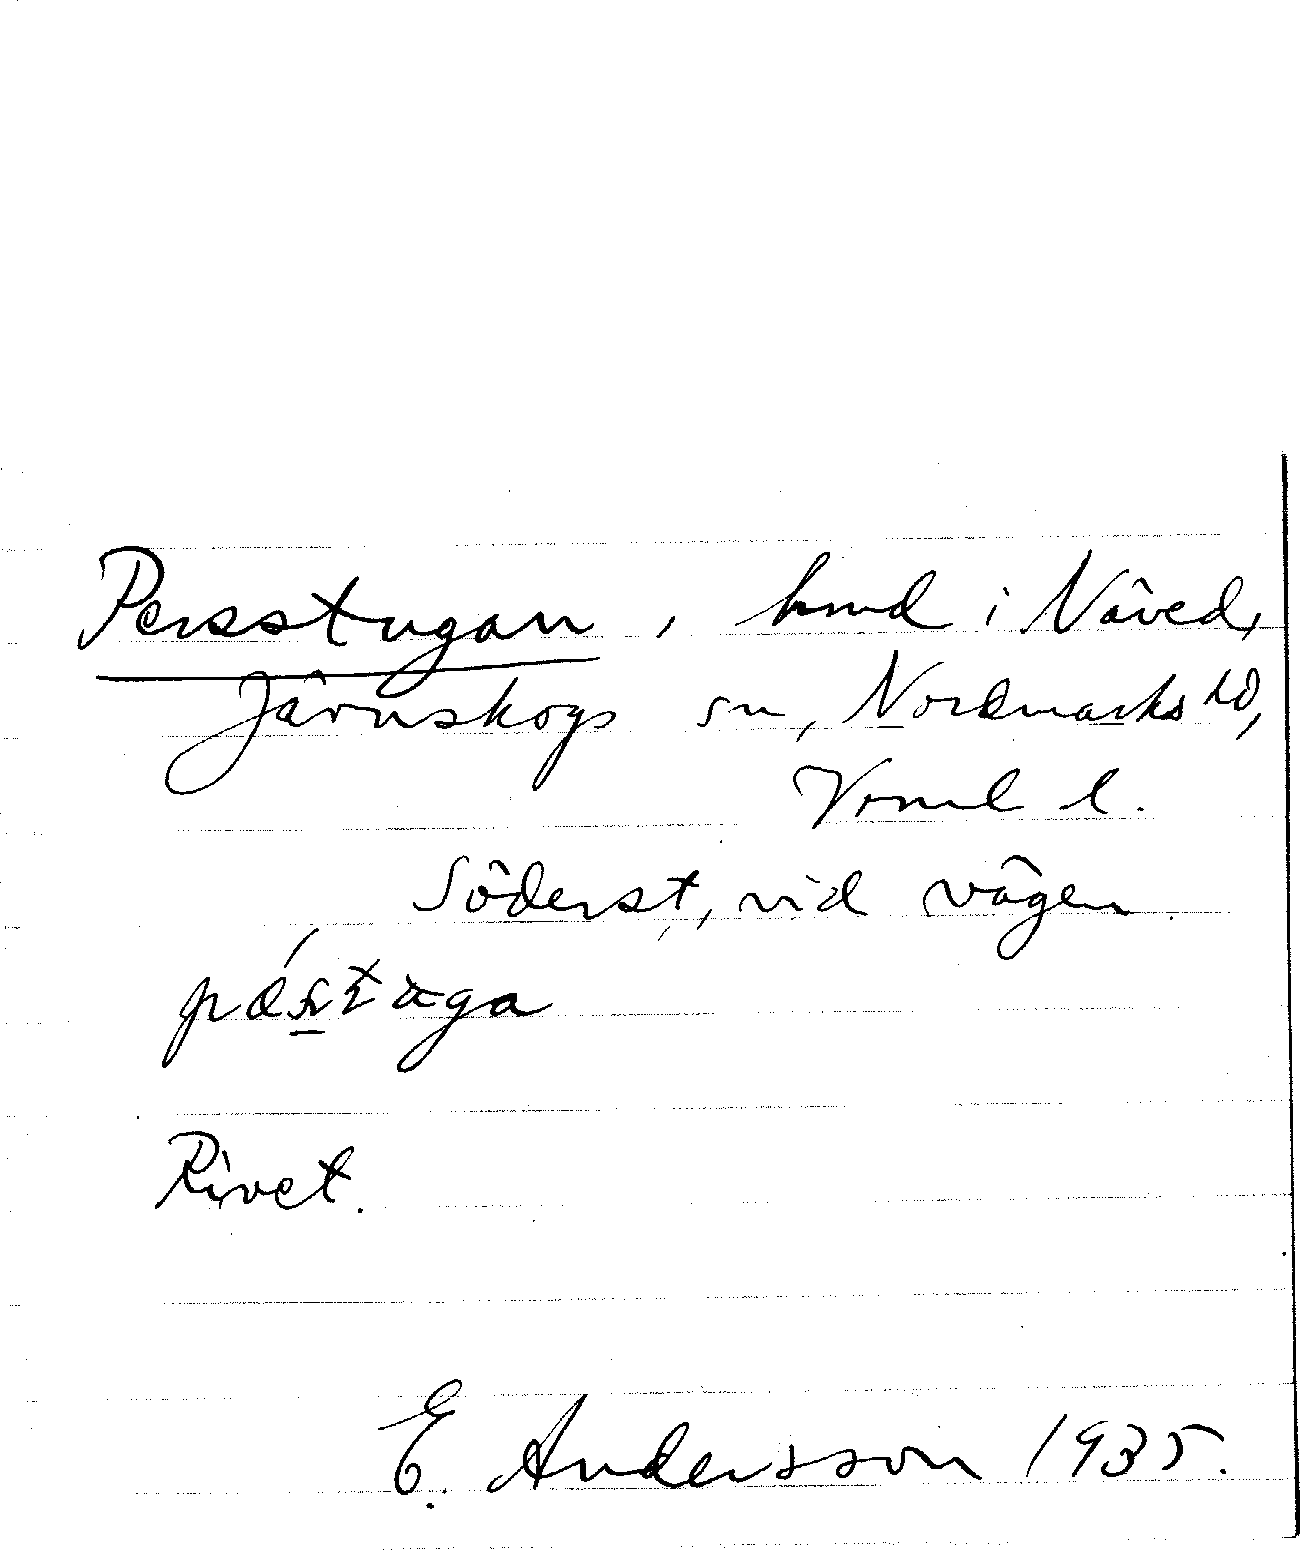 Persstugan, hmd i Näved,
Järnskogs sn, Nordmarks hd,
Vrml l.
Söderst, vid vägen
Rivet.
E. Andersson 1935.